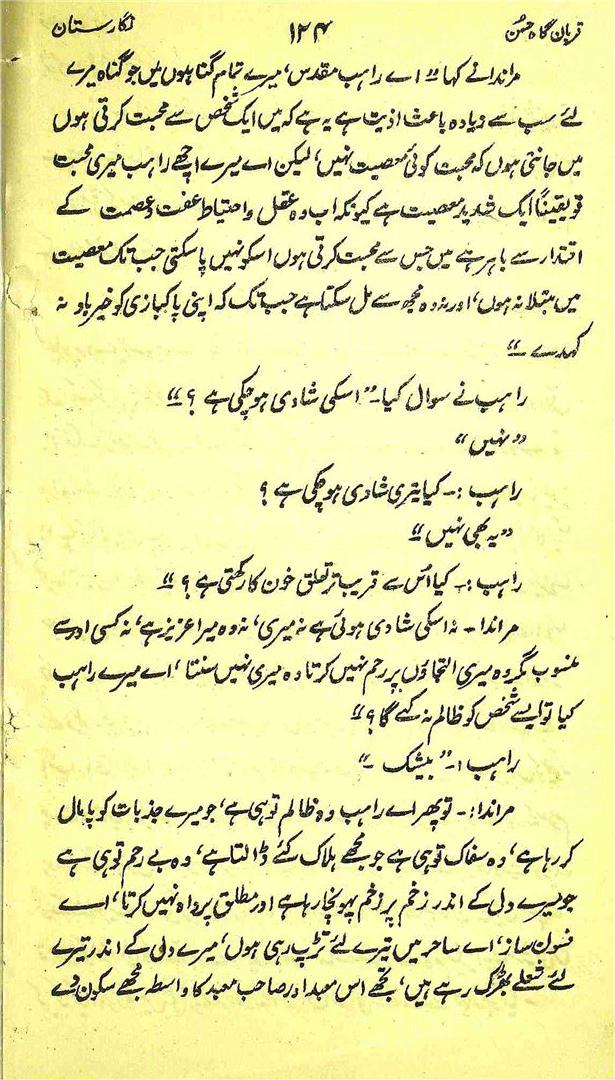 قربان گاہ حسن ۱۲۴ نگارستان
مراندانے کہا "اے راہب مقدس، میرے تمام گناہوں میں جو گناہ میرے
لئے سب سے زیادہ باعث اذیت ہے یہ ہے کہ میں ایک شخص سے محبت کرتی ہوں
میں جانتی ہوں کہ محبت کوئی معصیت نہیں، لیکن اے میرے اچھے راہب میری محبت
تو یقیناً ایک شدید معصیت ہے کیونکہ اب وہ عقل و احتیاط عفت و عصمت کے
اقتدار سے باہر ہے میں جس سے محبت کرتی ہوں اسکو نہیں پاسکتی جب تک معصیت
میں مبتلا نہ ہوں، اور نہ وہ مجھ سے مل سکتا ہے جب تک کہ اپنی پاکبازی کو خیرباد نہ
کہدے۔"
راہب نے سوال کیا۔ "اسکی شادی ہوچکی ہے؟"
"نہیں"
راہب :۔ کیا تیری شادی ہوچکی ہے؟
"یہ بھی نہیں"
راہب :۔ کیا اُس سے قریب تر تعلق خون کا رکھتی ہے؟"
مراندا۔ نہ اسکی شادی ہوئی ہے نہ میری، نہ وہ میرا عزیز ہے، نہ کسی اور سے
منسوب مگر وہ میری التجاؤں پر رحم نہیں کرتا وہ میری نہیں سنتا، اے میرے راہب
کیا تو ایسے شخص کو ظالم نہ کہے گا؟"
راہب :۔ "بیشک۔"
مراندا:۔ تو پھر اے راہب وہ ظالم تو ہی ہے، جو میرے جذبات کو پامال
کر رہا ہے، وہ سفاک تو ہی ہے جو مجھے ہلاک کئے ڈالتا ہے، وہ بے رحم تو ہی ہے
جو میرے دل کے اندر زخم پر زخم پہونچا رہا ہے اور مطلق پرواہ نہیں کرتا، اے
فسون ساز، اے ساحر میں تیرے لئے تڑپ رہی ہوں، میرے دل کے اندر تیرے
لئے شعلے بھڑک رہے ہیں، تجھے اس معبد اور صاحب معبد کا واسطہ مجھے سکون دے